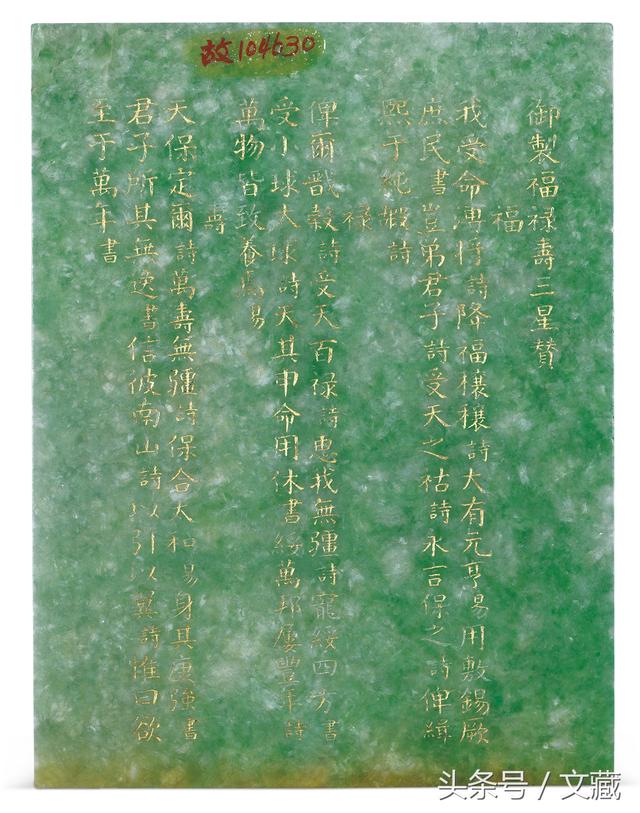 故104630
御製福禄壽三星贊
福
我受命溥將詩降福穰穰詩大有元亨易用敷錫厥
庶民書豈弟君子詩受天之祜詩永言保之詩俾緝
熙于純嘏詩
禄
俾爾戩穀詩受天百禄詩惠我無疆詩寵綏四方書
受小球大球詩天其申命用休書綏萬邦屢豐年詩
萬物皆致養焉易
壽
天保定爾詩萬壽無疆詩保合大和易身其康強書
君子所其無逸書信彼南山詩以引以翼詩惟曰欲
至于萬年書
头条号 / 文藏